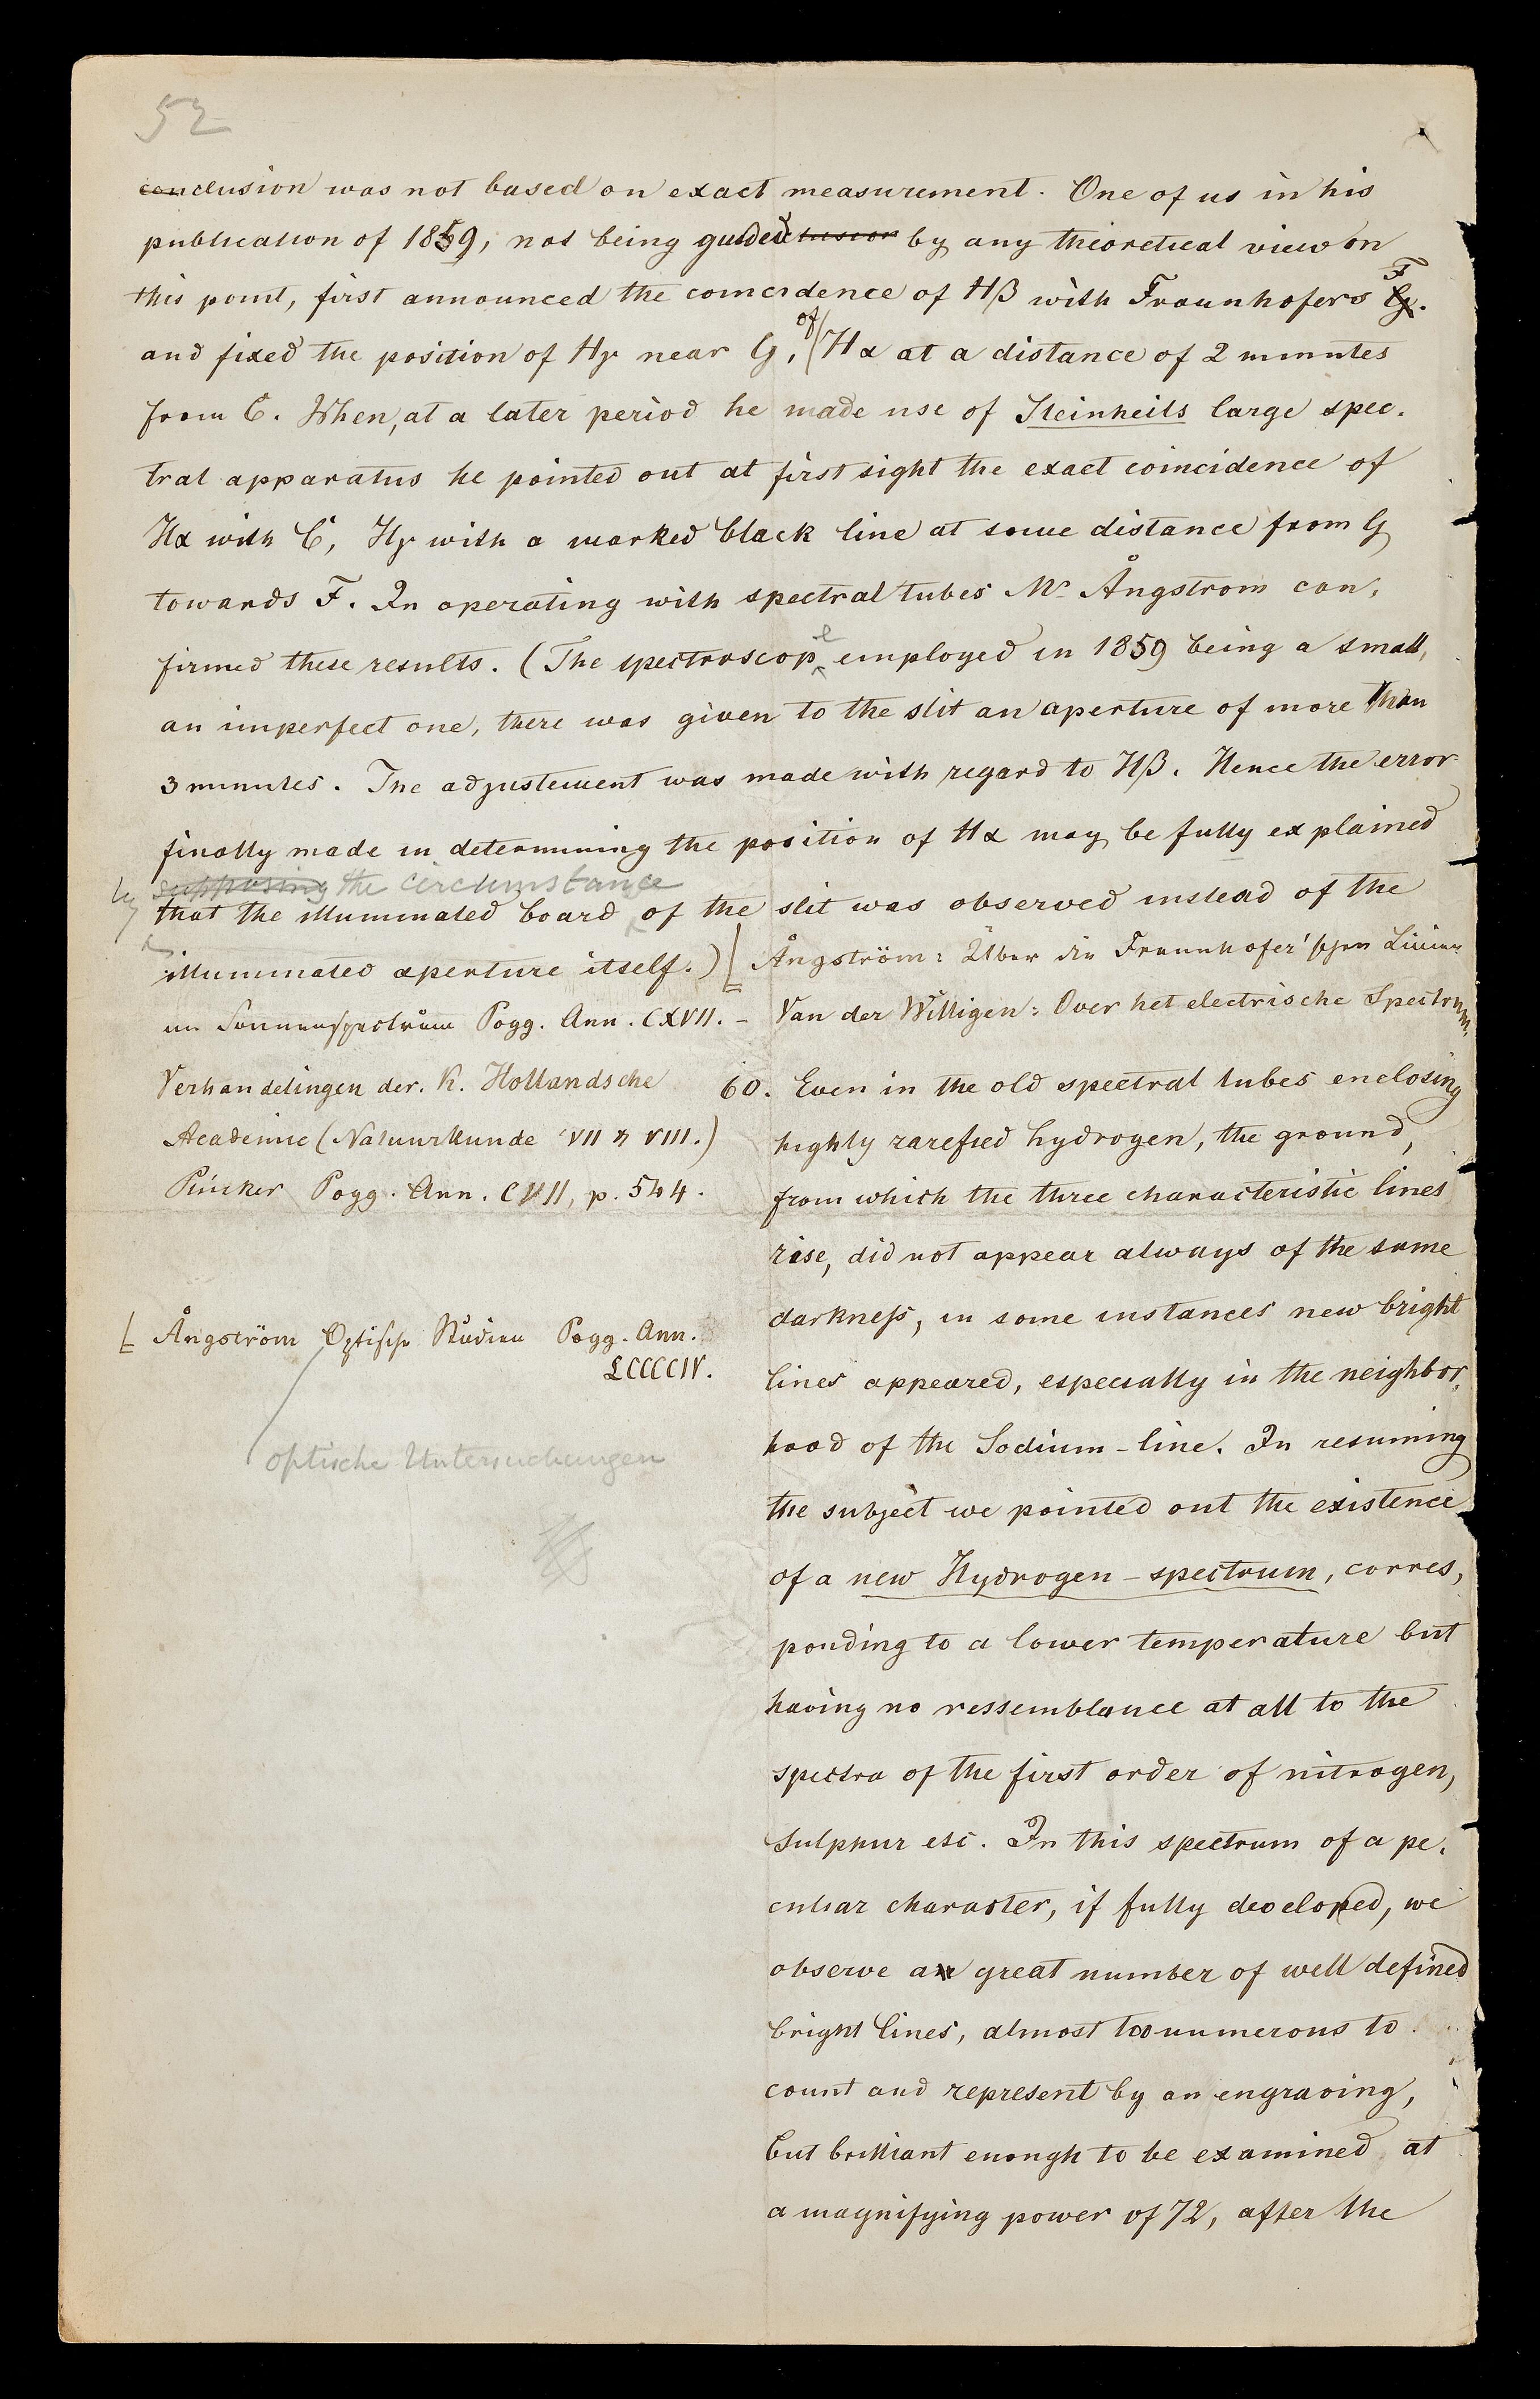 52
conclusion was not based on exact measurement. One of us in his
publication of 1859, not being guided by any theoretical view on
this point, first announced the coincidence of Hβ with Fraunhofers F.
and fixed the position of Hγ near G, of Hα at a distance of 2 minutes
from C. When, at a later period he made use of Steinheils large spec,
tral apparatus he pointed out at first sight the exact coincidence of
Hα with C, Hγ with a marked black line at some distance from G
towards F. In operating with spectral tubes Mr Ångstrom con,
firmed these results. (The spectroscope employed in 1859 being a small,
an imperfect one, there was given to the slit an aperture of more than
3 minutes. The adjustement was made with regard to Hβ. Hence the error
finally made in determining the position of Hα may be fully explained
by supposing the circumstance
that the illuminated board of the slit was observed instead of the
illuminated aperture itself.) [ Ångström: Über die Fraunhofer'schen Linien
im Sonnenspectrum Pogg. Ann. CXVII. – Van der Willigen: Over het electrische Spectrum.
Verhandelingen der. K. Hollandsche
Academie (Natuurkunde VII & VIII.)
Plücker Pogg. Ann. CVII, p. 544.
[ Ångström Optische Studien Pogg. Ann.
LCCCCIV.
optische Untersuchungen
60. Even in the old spectral tubes enclosing
highly rarefied hydrogen, the ground,
from which the three characteristic lines
rise, did not appear always of the same
darkness, in some instances new bright
lines appeared, especially in the neighbor,
hood of the Sodium-line. In resuming
the subject we pointed out the existence
of a new Hydrogen-spectrum, corres,
ponding to a lower temperature but
having no ressemblance at all to the
spectra of the first order of nitrogen,
Sulphur etc. In this spectrum of a pe,
culiar character, if fully developed, we
observe a great number of well defined
bright lines, almost too numerous to
count and represent by an engraving,
but brilliant enough to be examined at
a magnifying power of 72, after the